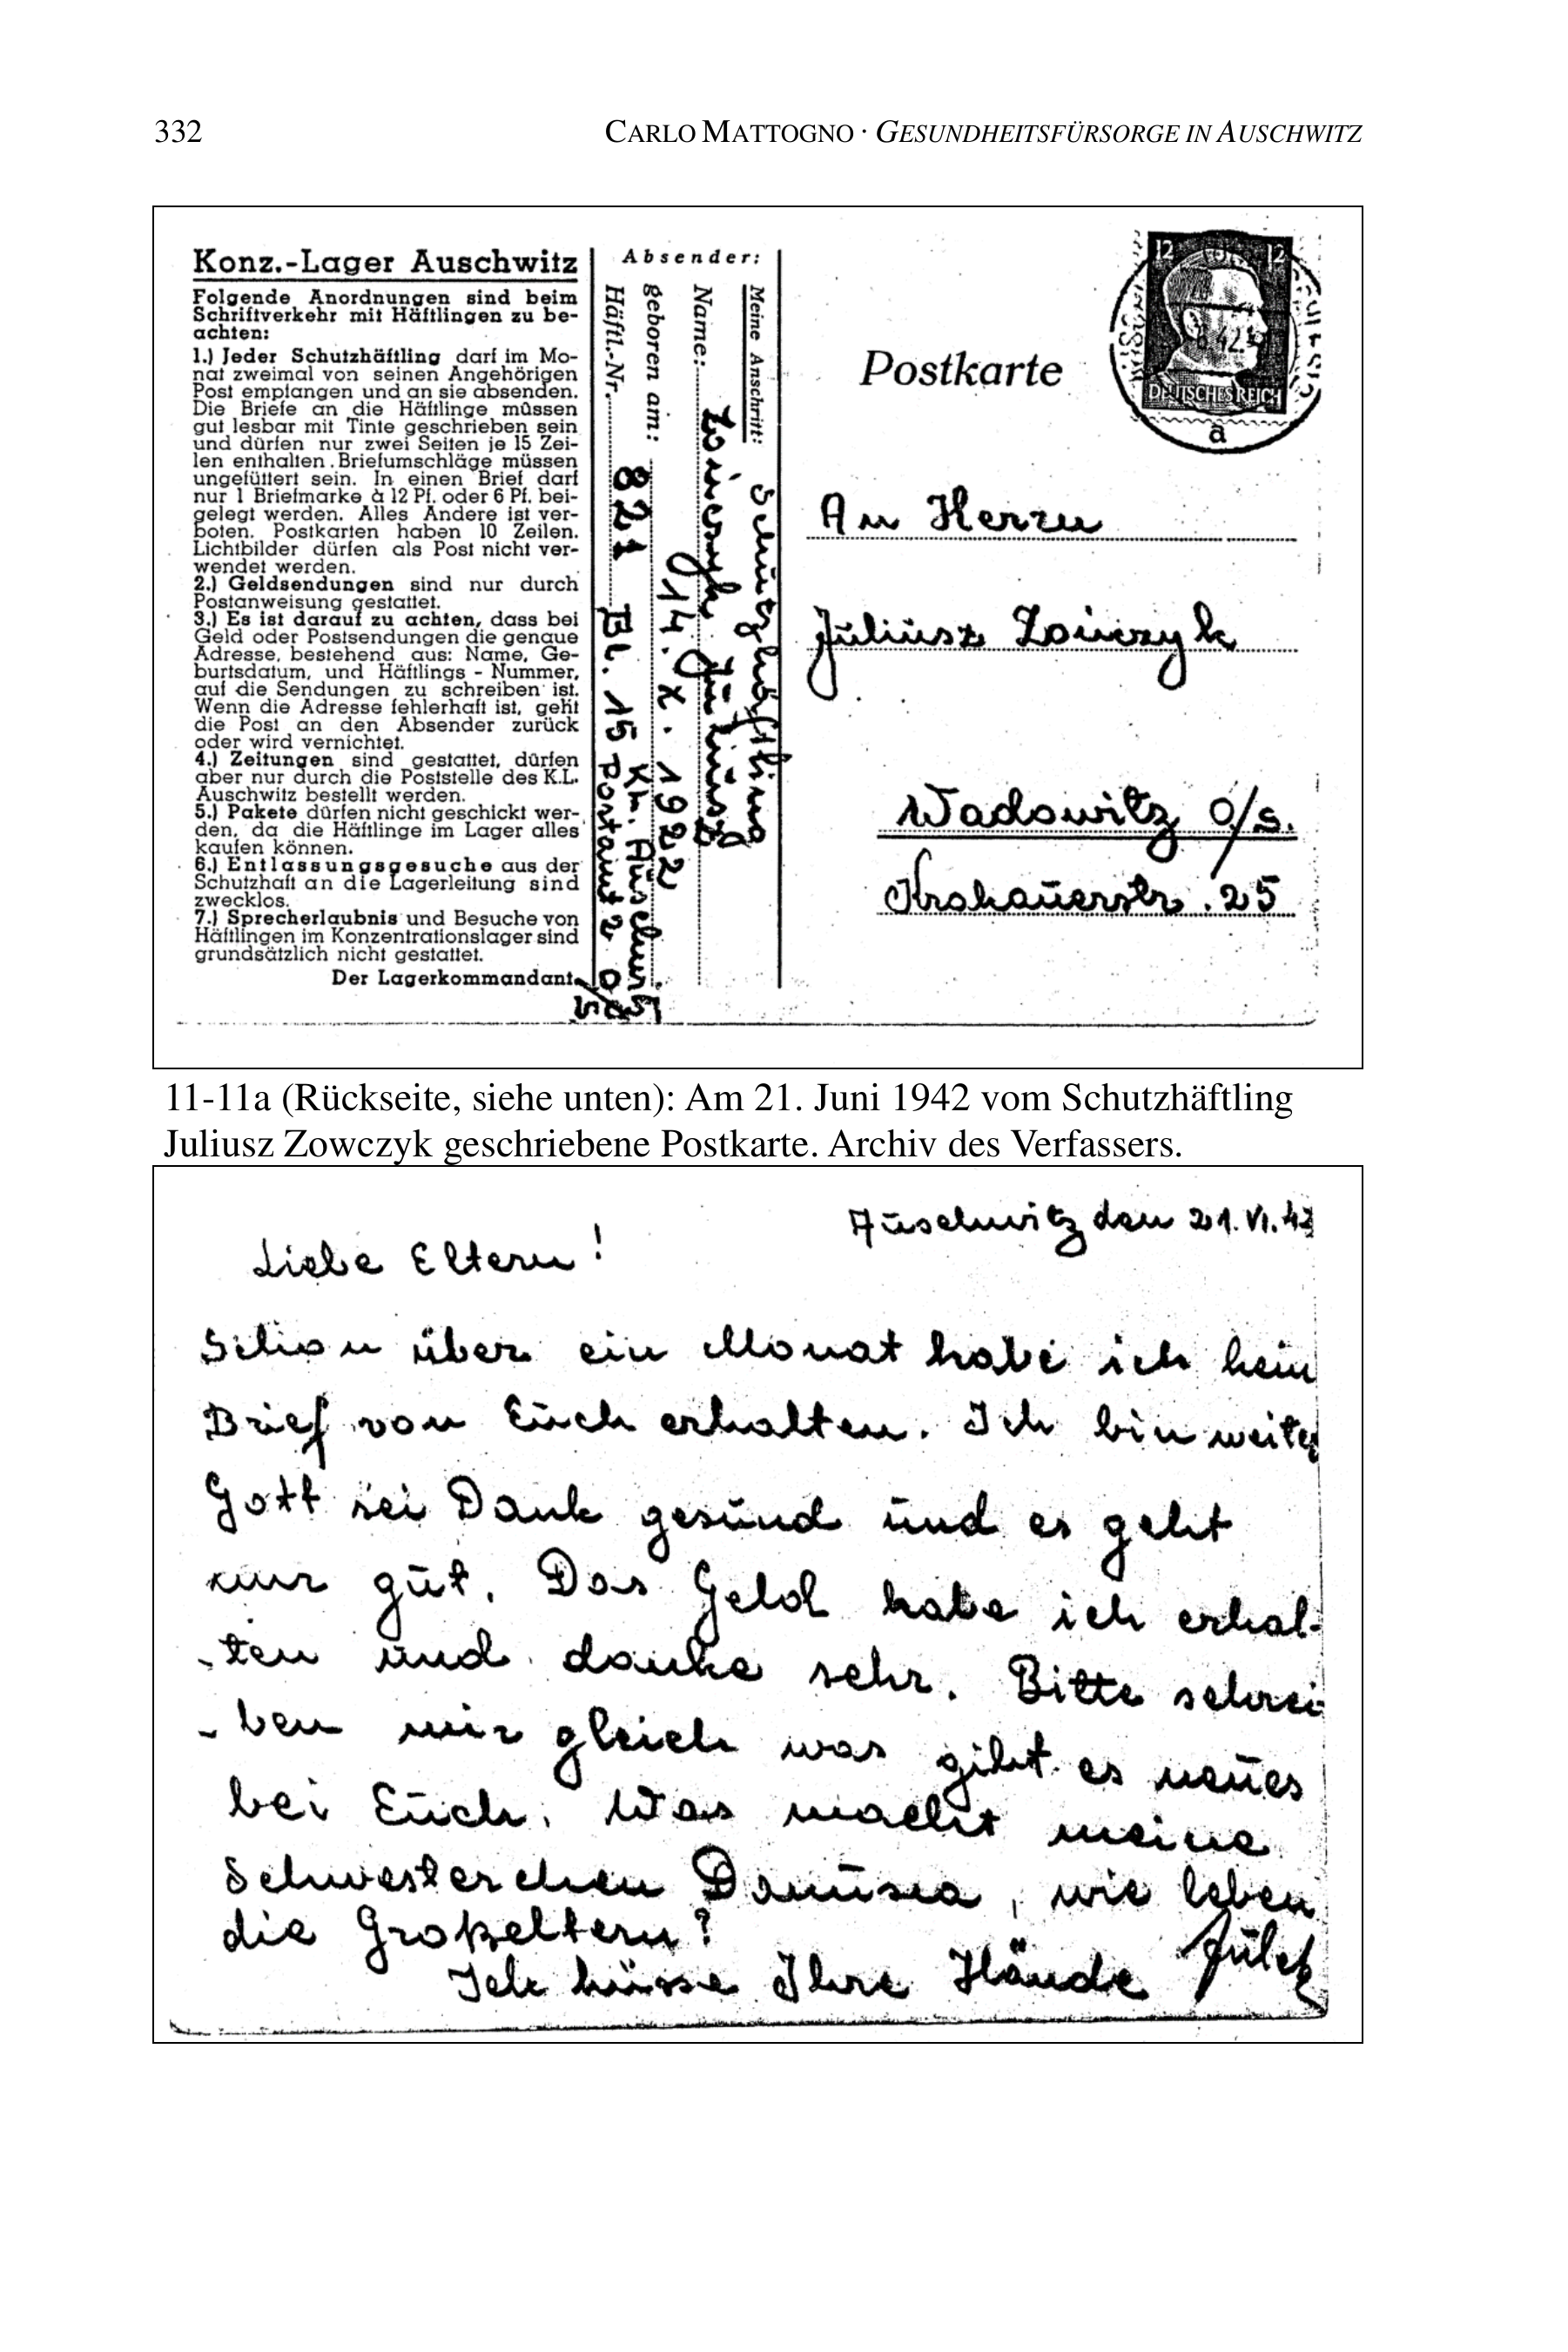 332
CARLO MATTOGNO · GESUNDHEITSFÜRSORGE IN AUSCHWITZ
Konz.-Lager Auschwitz
Folgende Anordnungen sind beim
Schriftverkehr mit Häftlingen zu be-
achten:
1.) Jeder Schutzhäftling darf im Mo-
nat zweimal von seinen Angehörigen
Post empfangen und an sie absenden.
Die Briefe an die Häftlinge müssen
gut lesbar mit Tinte geschrieben sein
und dürfen nur zwei Seiten je 15 Zei-
len enthalten. Briefumschläge müssen
ungefüttert sein. In einen Brief darf
nur 1 Briefmarke à 12 Pf. oder 6 Pf. bei-
gelegt werden. Alles Andere ist ver-
boten. Postkarten haben 10 Zeilen.
Lichtbilder dürfen als Post nicht ver-
wendet werden.
2.) Geldsendungen sind nur durch
Postanweisung gestattet.
3.) Es ist darauf zu achten, dass bei
Geld oder Postsendungen die genaue
Adresse, bestehend aus: Name, Ge-
burtsdatum, und Häftlings - Nummer,
auf die Sendungen zu schreiben ist.
Wenn die Adresse fehlerhaft ist, geht
die Post an den Absender zurück
oder wird vernichtet.
4.) Zeitungen sind gestattet, dürfen
aber nur durch die Poststelle des K.L.
Auschwitz bestellt werden.
5.) Pakete dürfen nicht geschickt wer-
den, da die Häftlinge im Lager alles
kaufen können.
6.) Entlassungsgesuche aus der
Schutzhaft an die Lagerleitung sind
zwecklos.
7.) Sprecherlaubnis und Besuche von
Häftlingen im Konzentrationslager sind
grundsätzlich nicht gestattet.
Der Lagerkommandant.
Absender:
Meine Anschrift: Schutzhäftling
Name: Juliusz
geboren am: 14. X. 1922
Häftl.-Nr. 821 Bl. 15 KL. Auschwitz
Postamt 2 O/S
Postkarte
12 12
DEUTSCHES REICH
a
An Herrn
Juliusz
Wadowitz O/S.
Krakauerstr. 25
11-11a (Rückseite, siehe unten): Am 21. Juni 1942 vom Schutzhäftling
Juliusz Zowczyk geschriebene Postkarte. Archiv des Verfassers.
Auschwitz den 21. VI. 42
Liebe Eltern!
Schon über ein Monat habe ich kein
Brief von Euch erhalten. Ich bin weiter
Gott sei Dank gesund und es geht
mir gut. Das Geld habe ich erhal-
-ten und danke sehr. Bitte schrei-
-ben mir gleich was gibt es neues
bei Euch. Was macht meine
Schwesterchen Danusia, wie leben
die Großeltern?
Ich küsse Ihre Hände Julek